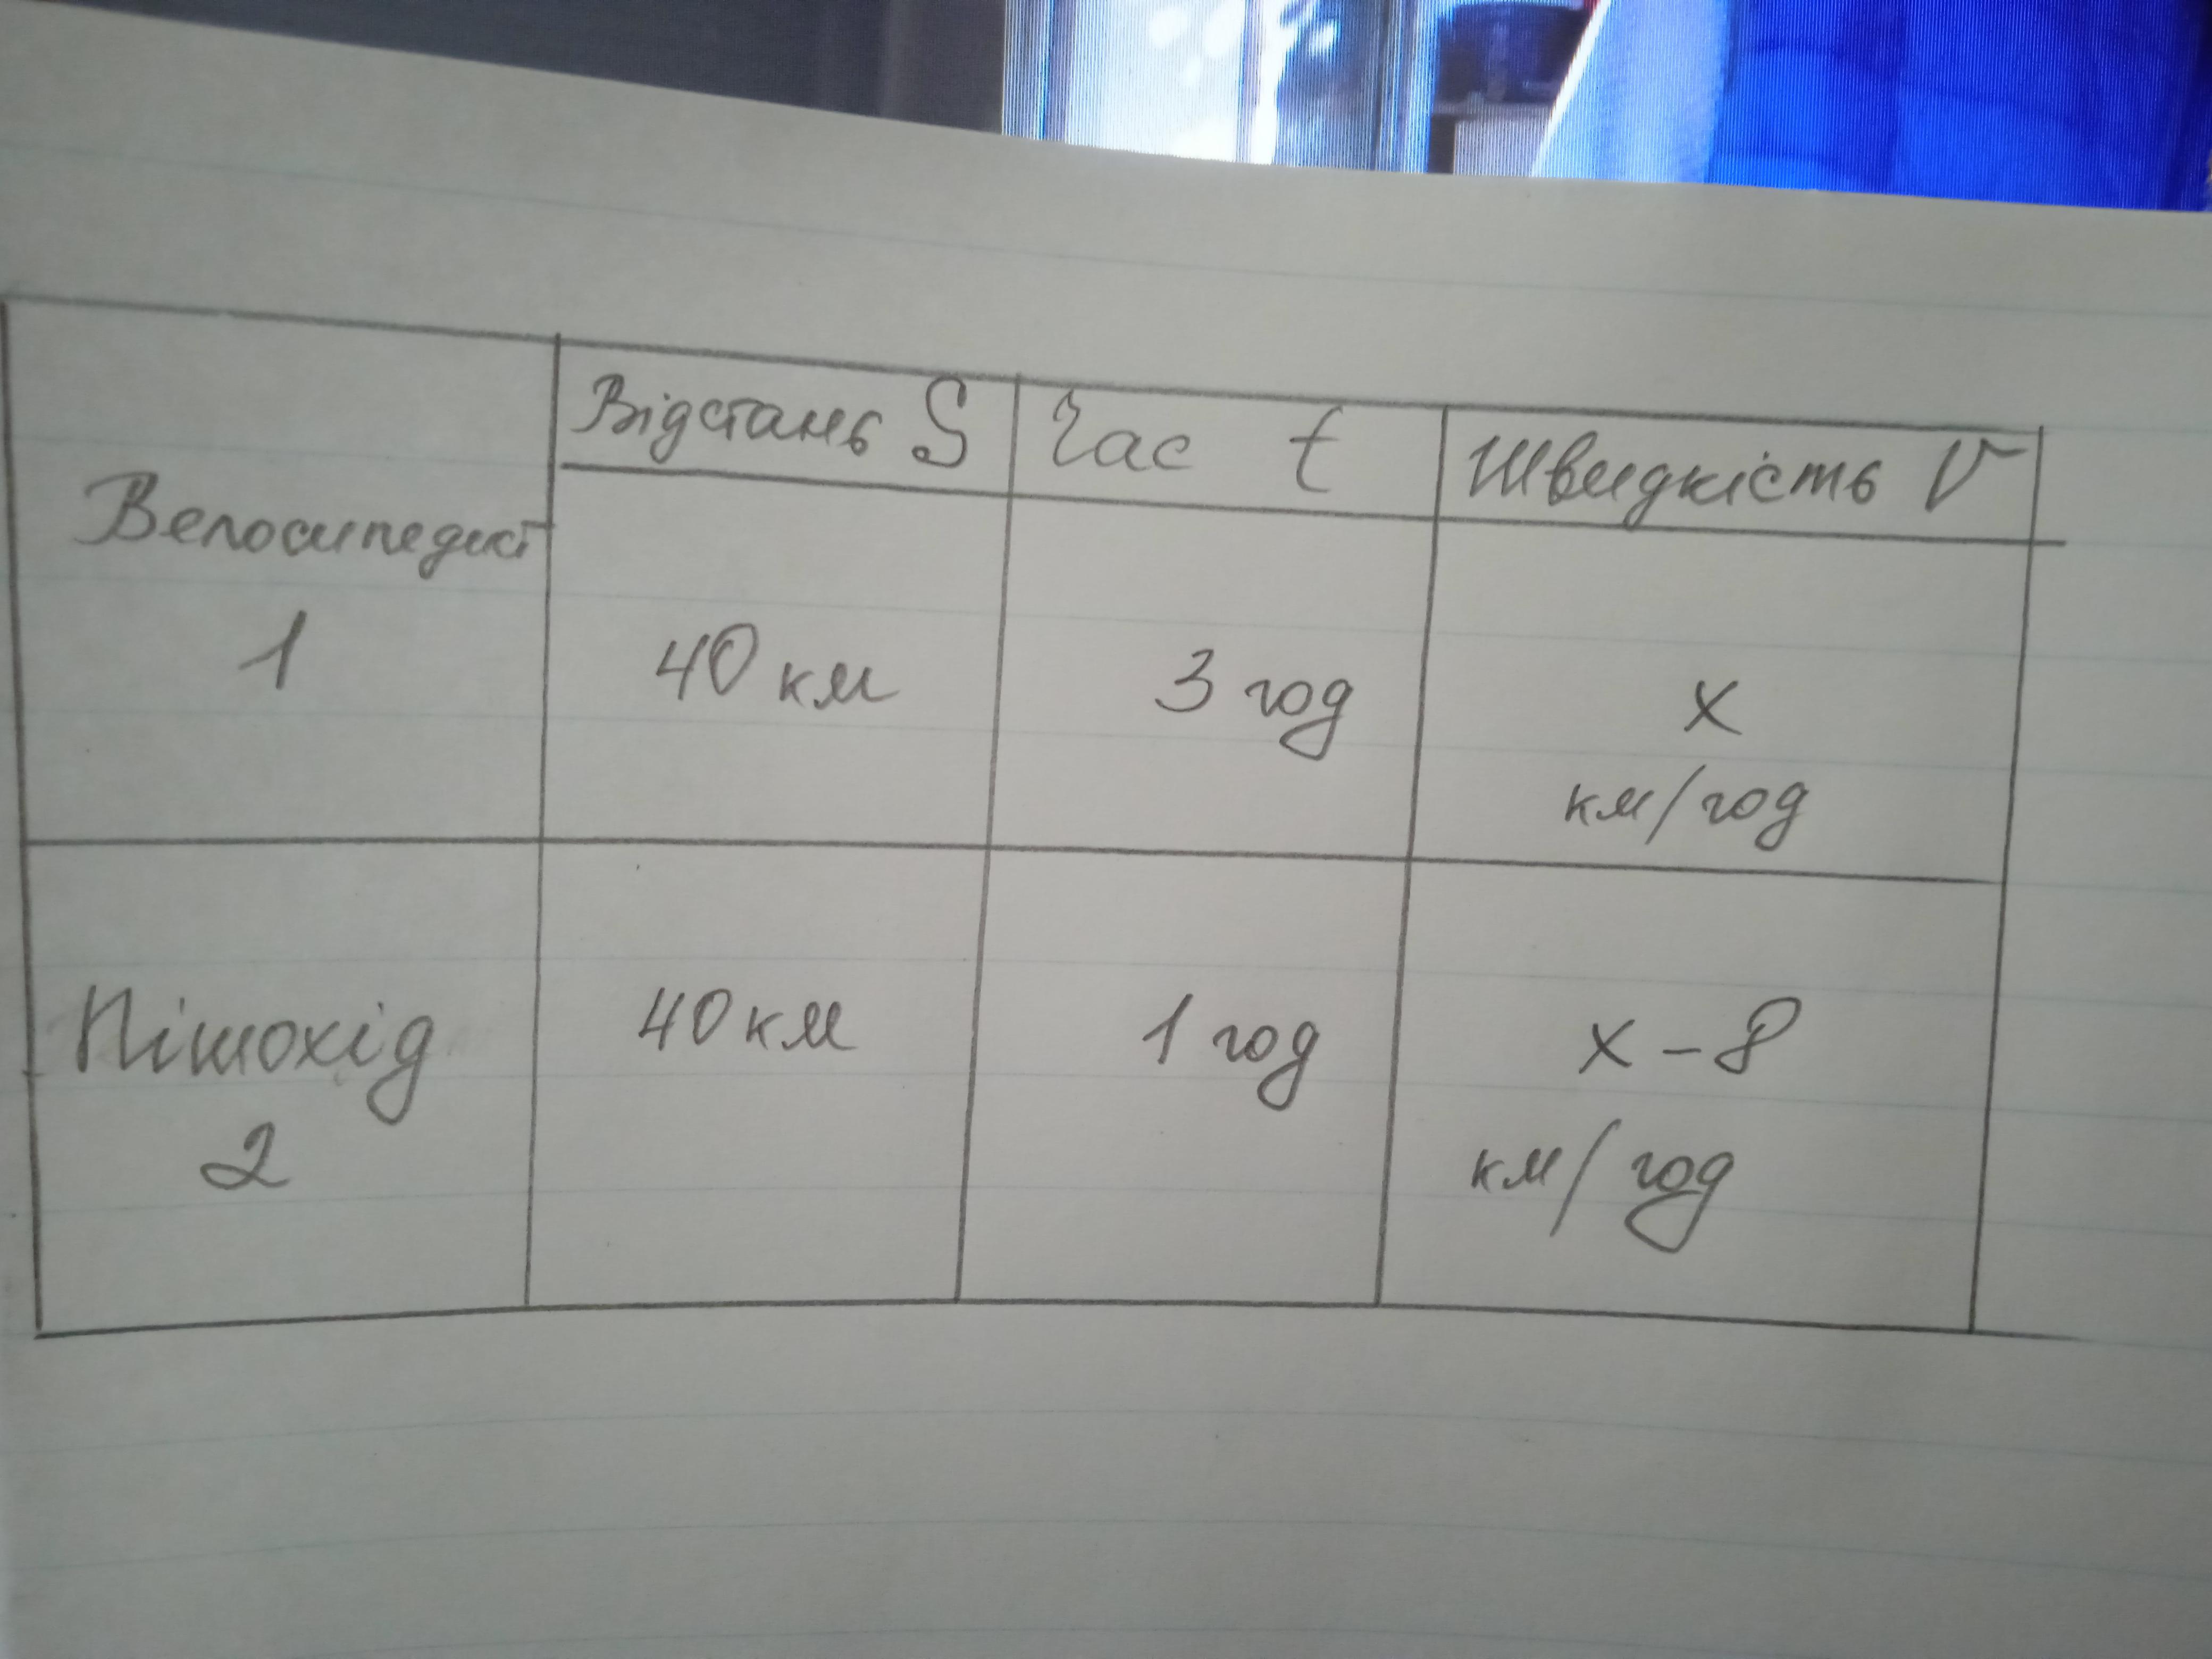 Відстань S Час t Швидкість V
Велосипедист
1 40 км 3 год х
км/год
Пішохід 40 км 1 год х - 8
2 км/год